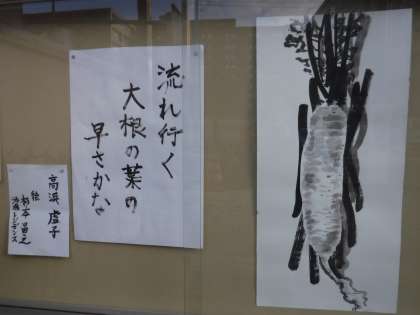 流れ行く
大根の葉の
早さかな
高浜虚子
絵